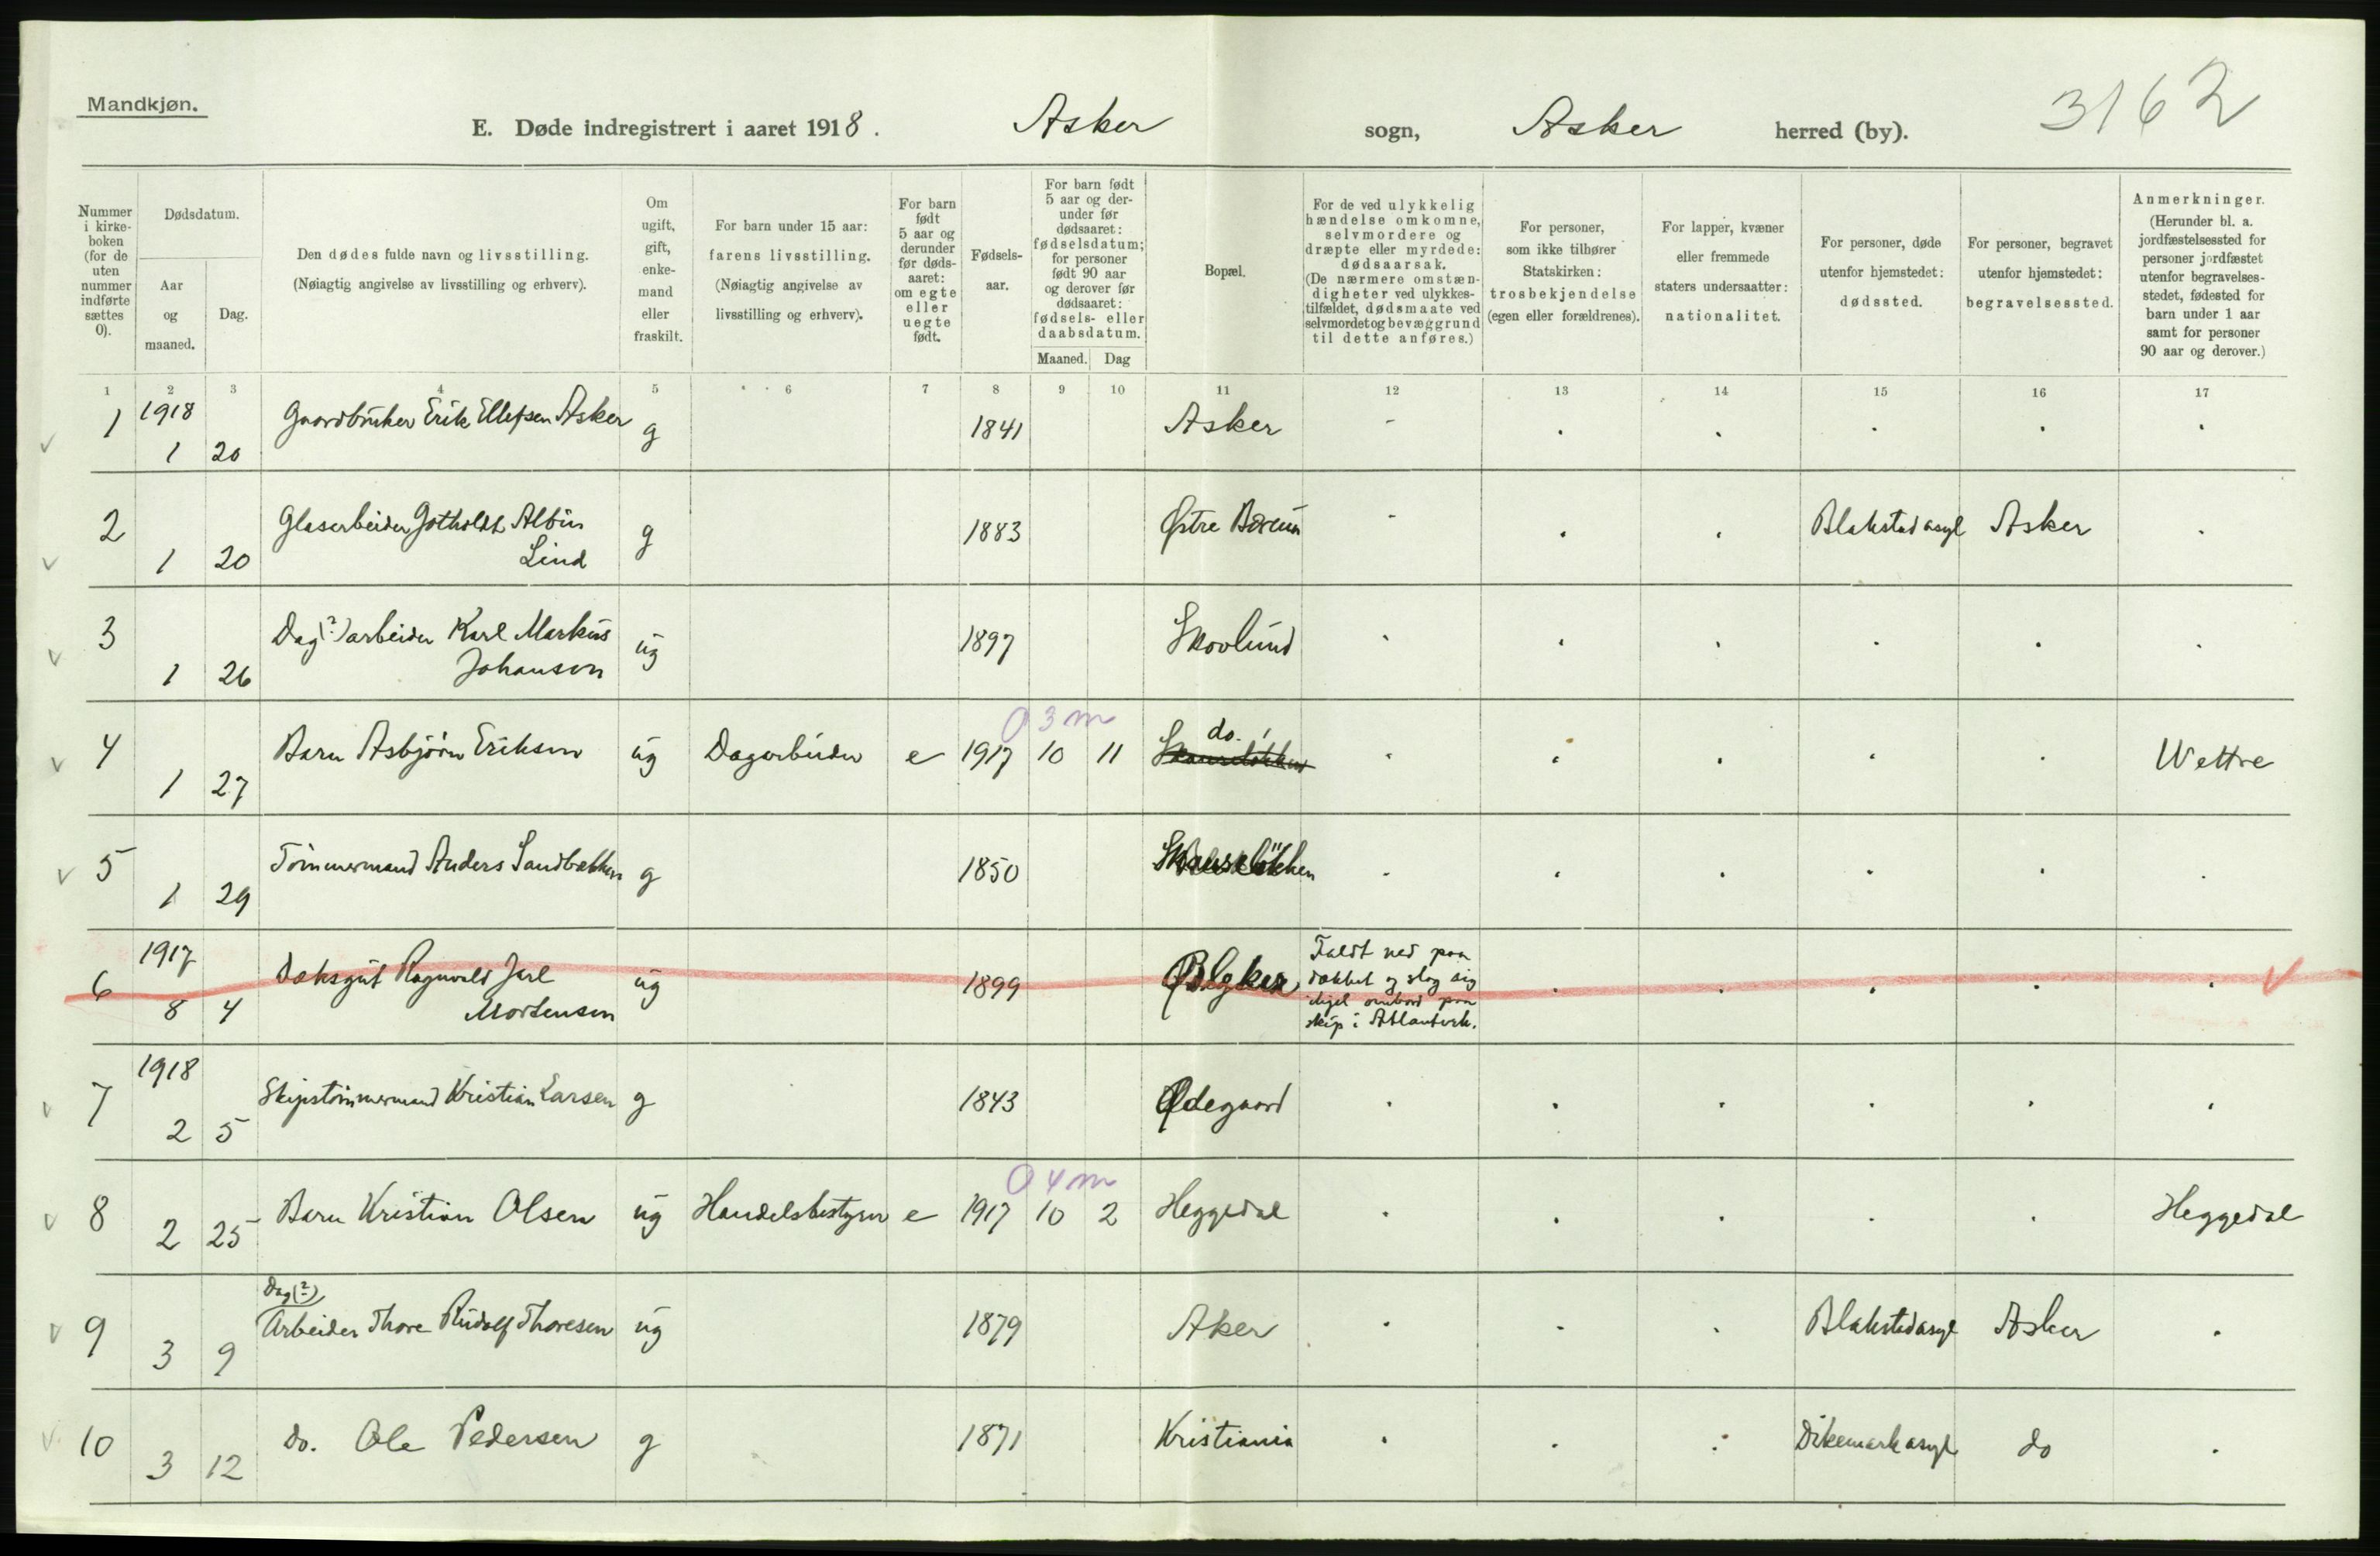 Mandkjøn.
E. Døde indregistrert i aaret 1918. Asker sogn, Asker herred (by). 3162
Nummer i kirkeboken (for de uten nummer indførte sættes 0).
Dødsdatum.
Aar og maaned.
Dag.
Den dødes fulde navn og livsstilling.
(Nøiagtig angivelse av livsstilling og erhverv).
Om ugift, gift, enkemand eller fraskilt.
For barn under 15 aar:
farens livsstilling.
(Nøiagtig angivelse av livsstilling og erhverv).
For barn født 5 aar og derunder før dødsaaret: om egte eller uegte født.
Fødselsaar.
For barn født 5 aar og derunder før dødsaaret: fødselsdatum; for personer født 90 aar og derover før dødsaaret: fødsels- eller daabsdatum.
Maaned. Dag
Bopæl.
For de ved ulykkelig hændelse omkomne, selvmordere og dræpte eller myrdede: dødsaarsak.
(De nærmere omstændigheter ved ulykkestilfældet, dødsmaate ved selvmordet og bevæggrund til dette anføres.)
For personer, som ikke tilhører Statskirken: trosbekjendelse (egen eller forældrenes).
For lapper, kvæner eller fremmede staters undersaatter: nationalitet.
For personer, døde utenfor hjemstedet: dødssted.
For personer, begravet utenfor hjemstedet: begravelsessted.
Anmerkninger.
(Herunder bl. a. jordfæstelsessted for personer jordfæstet utenfor begravelsesstedet, fødested for barn under 1 aar samt for personer 90 aar og derover.)
1 2 3 4 5 6 7 8 9 10 11 12 13 14 15 16 17
1 1918 1 20 Gaardbruker Erik Ellefsen Asker g 1841 Asker
2 1 20 Glasarbeider Gotholdt Albin Lind g 1883 Østre Bærum Blakstad asyl Asker
3 1 26 Dag(?)arbeider Karl Markus Johansen ug 1897 Skovlund
0 3 m
4 1 27 Barn Asbjørn Eriksen ug Dagarbeider e 1917 10 11 do. Wettre
5 1 29 Tømmermand Anders Sandbækken g 1850
6 1917 8 4 Dæksgut Ragnvald Jarl Mortensen ug 1899 Faldt ned paa dækket og slog sig ihjel ombord paa skip i Atlanterh.
7 1918 2 5 Skipstømmermand Kristian Larsen g 1843 Ødegaard
0 4 m
8 2 25 Barn Kristian Olsen ug Handelsbestyrer e 1917 10 2 Heggedal Heggedal
9 3 9 Dag(?) Arbeider Thore Rudolf Thoresen ug 1879 Aker Blakstad asyl Asker
10 3 12 do. Ole Pedersen g 1871 Kristiania Dikemark asyl do